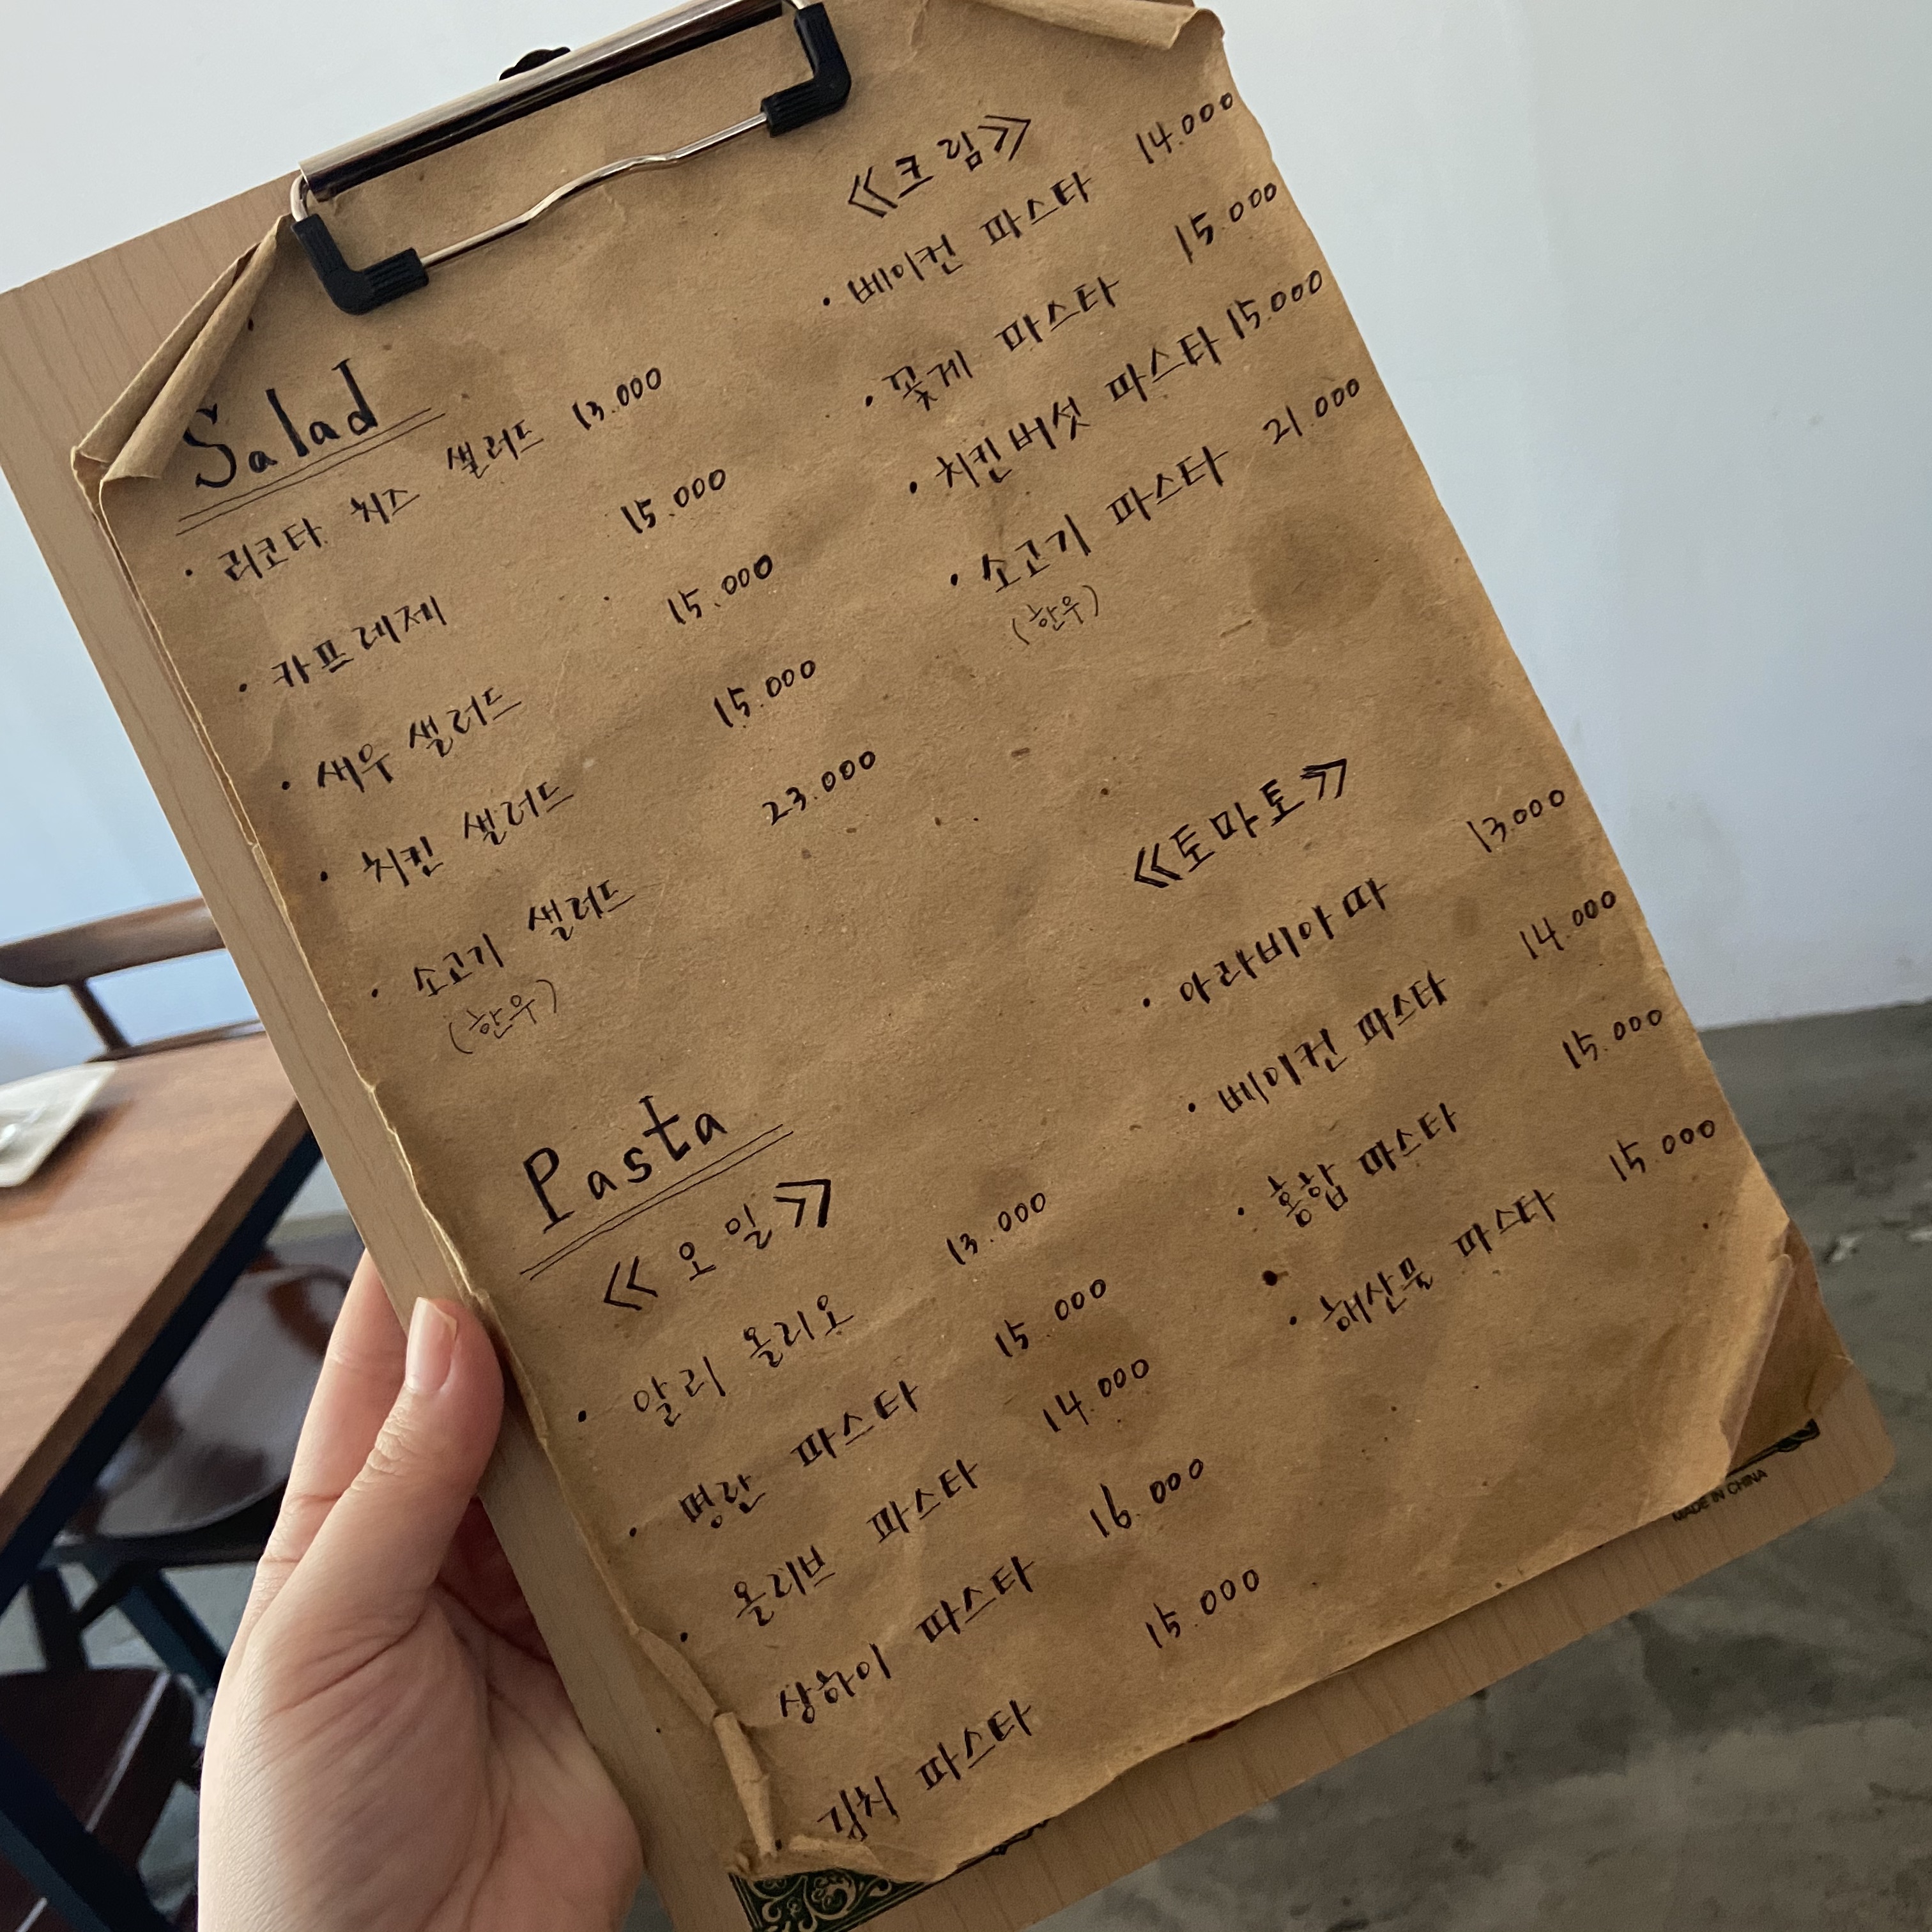 Salad
· 리코타 치즈 샐러드 13.000
· 카프레제 15.000
· 새우 샐러드 15.000
· 치킨 샐러드 15.000
· 소고기 샐러드 23.000
(한우)
Pasta
《오일》
· 알리 올리오 13.000
· 명란 파스타 15.000
· 올리브 파스타 14.000
· 상하이 파스타 16.000
· 김치 파스타 15.000
《크림》
· 베이컨 파스타 14.000
· 꽃게 파스타 15.000
· 치킨버섯 파스타 15.000
· 소고기 파스타 21.000
(한우)
《토마토》
· 아라비아따 13.000
· 베이컨 파스타 14.000
· 홍합 파스타 15.000
· 해산물 파스타 15.000
MADE IN CHINA